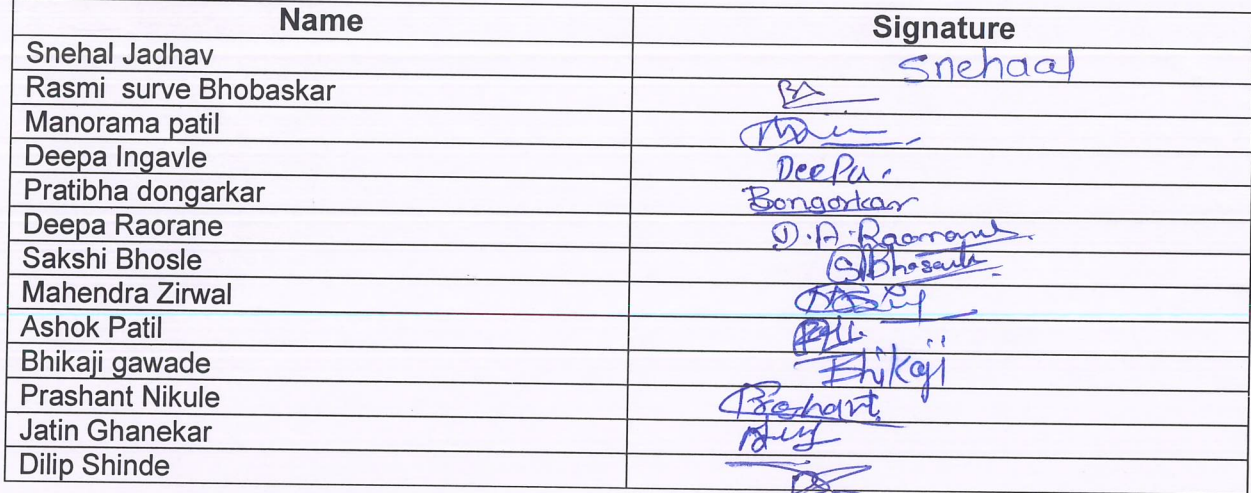 Name Signature
Snehal Jadhav Snehaal
Rasmi surve Bhobaskar
Manorama patil
Deepa Ingavle Deepa.
Pratibha dongarkar
Deepa Raorane D.A.Raorane
Sakshi Bhosle
Mahendra Zirwal
Ashok Patil
Bhikaji gawade Bhikaji
Prashant Nikule Prashant
Jatin Ghanekar
Dilip Shinde